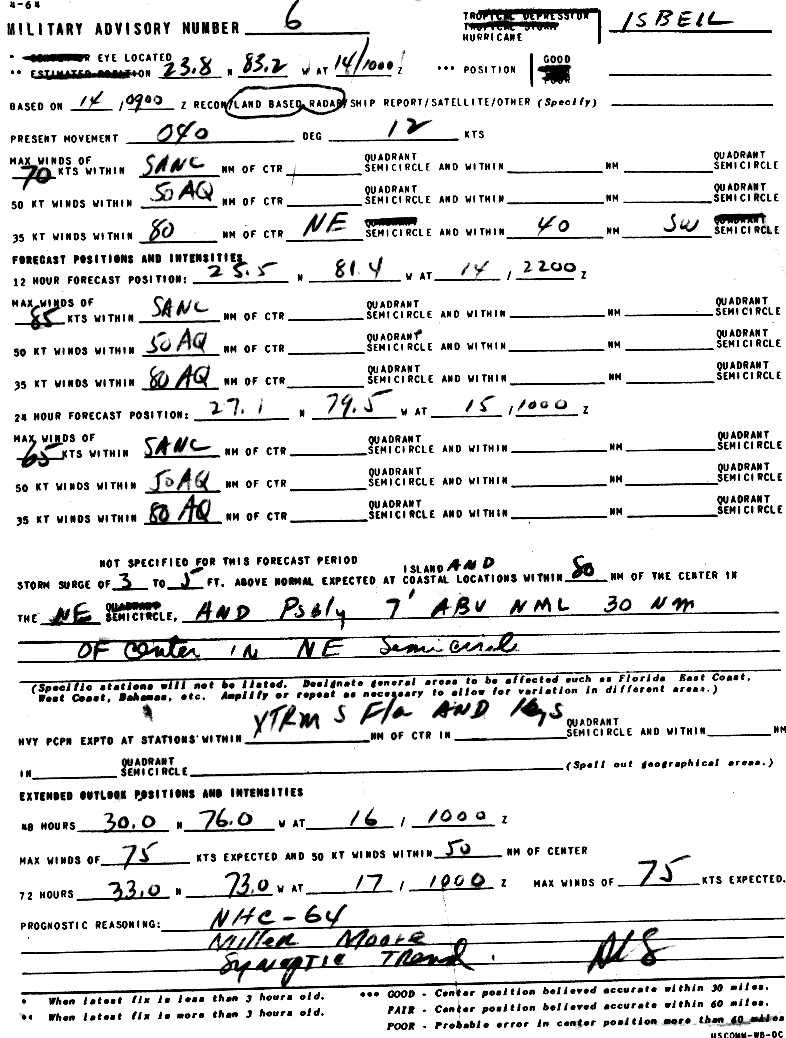 4-64
MILITARY ADVISORY NUMBER 6 TROPICAL DEPRESSION ISBELL
TROPICAL STORM
HURRICANE
* R EYE LOCATED
** ESTIMATED POSITION 23.8 N 83.2 W AT 14/1000 Z *** POSITION GOOD
BASED ON 14 /0900 Z RECON/LAND BASED RADAR/SHIP REPORT/SATELLITE/OTHER (Specify)
PRESENT MOVEMENT 040 DEG 12 KTS
MAX WINDS OF QUADRANT QUADRANT
70 KTS WITHIN SANC NM OF CTR SEMICIRCLE AND WITHIN NM SEMICIRCLE
50 KT WINDS WITHIN 50 AQ NM OF CTR
35 KT WINDS WITHIN 80 NM OF CTR NE QUADRANT SEMICIRCLE AND WITHIN 40 NM SW QUADRANT SEMICIRCLE
FORECAST POSITIONS AND INTENSITIES
12 HOUR FORECAST POSITION: 25.5 N 81.4 W AT 14 / 2200 Z
MAX WINDS OF QUADRANT QUADRANT
85 KTS WITHIN SANC NM OF CTR SEMICIRCLE AND WITHIN NM SEMICIRCLE
50 KT WINDS WITHIN 50 AQ NM OF CTR QUADRANT SEMICIRCLE AND WITHIN NM QUADRANT SEMICIRCLE
35 KT WINDS WITHIN 80 AQ NM OF CTR QUADRANT SEMICIRCLE AND WITHIN NM QUADRANT SEMICIRCLE
24 HOUR FORECAST POSITION: 27.1 N 79.5 W AT 15 /1000 Z
MAX WINDS OF QUADRANT QUADRANT
65 KTS WITHIN SANC NM OF CTR SEMICIRCLE AND WITHIN NM SEMICIRCLE
50 KT WINDS WITHIN 50 AQ NM OF CTR QUADRANT SEMICIRCLE AND WITHIN NM QUADRANT SEMICIRCLE
35 KT WINDS WITHIN 80 AQ NM OF CTR QUADRANT SEMICIRCLE AND WITHIN NM QUADRANT SEMICIRCLE
NOT SPECIFIED FOR THIS FORECAST PERIOD ISLAND AND
STORM SURGE OF 3 TO 5 FT. ABOVE NORMAL EXPECTED AT COASTAL LOCATIONS WITHIN 80 NM OF THE CENTER IN
THE NE QUADRANT SEMICIRCLE, AND PsBly 7' ABV NML 30 Nm
OF center in NE Semicircle
(Specific stations will not be listed. Designate general areas to be affected such as Florida East Coast,
West Coast, Bahamas, etc. Amplify or repeat as necessary to allow for variation in different areas.)
XTRM S Fla AND Keys
HVY PCPN EXPTD AT STATIONS WITHIN NM OF CTR IN QUADRANT SEMICIRCLE AND WITHIN NM
IN QUADRANT SEMICIRCLE (Spell out geographical areas.)
EXTENDED OUTLOOK POSITIONS AND INTENSITIES
48 HOURS 30.0 N 76.0 W AT 16 / 1000 Z
MAX WINDS OF 75 KTS EXPECTED AND 50 KT WINDS WITHIN 50 NM OF CENTER
72 HOURS 33.0 N 73.0 W AT 17 / 1000 Z MAX WINDS OF 75 KTS EXPECTED.
PROGNOSTIC REASONING: NHC-64
Miller Moore
Synoptic Trend.
* When latest fix is less than 3 hours old. *** GOOD - Center position believed accurate within 30 miles.
** When latest fix is more than 3 hours old. FAIR - Center position believed accurate within 60 miles.
POOR - Probable error in center position more than 60 miles
USCOMM-WB-DC